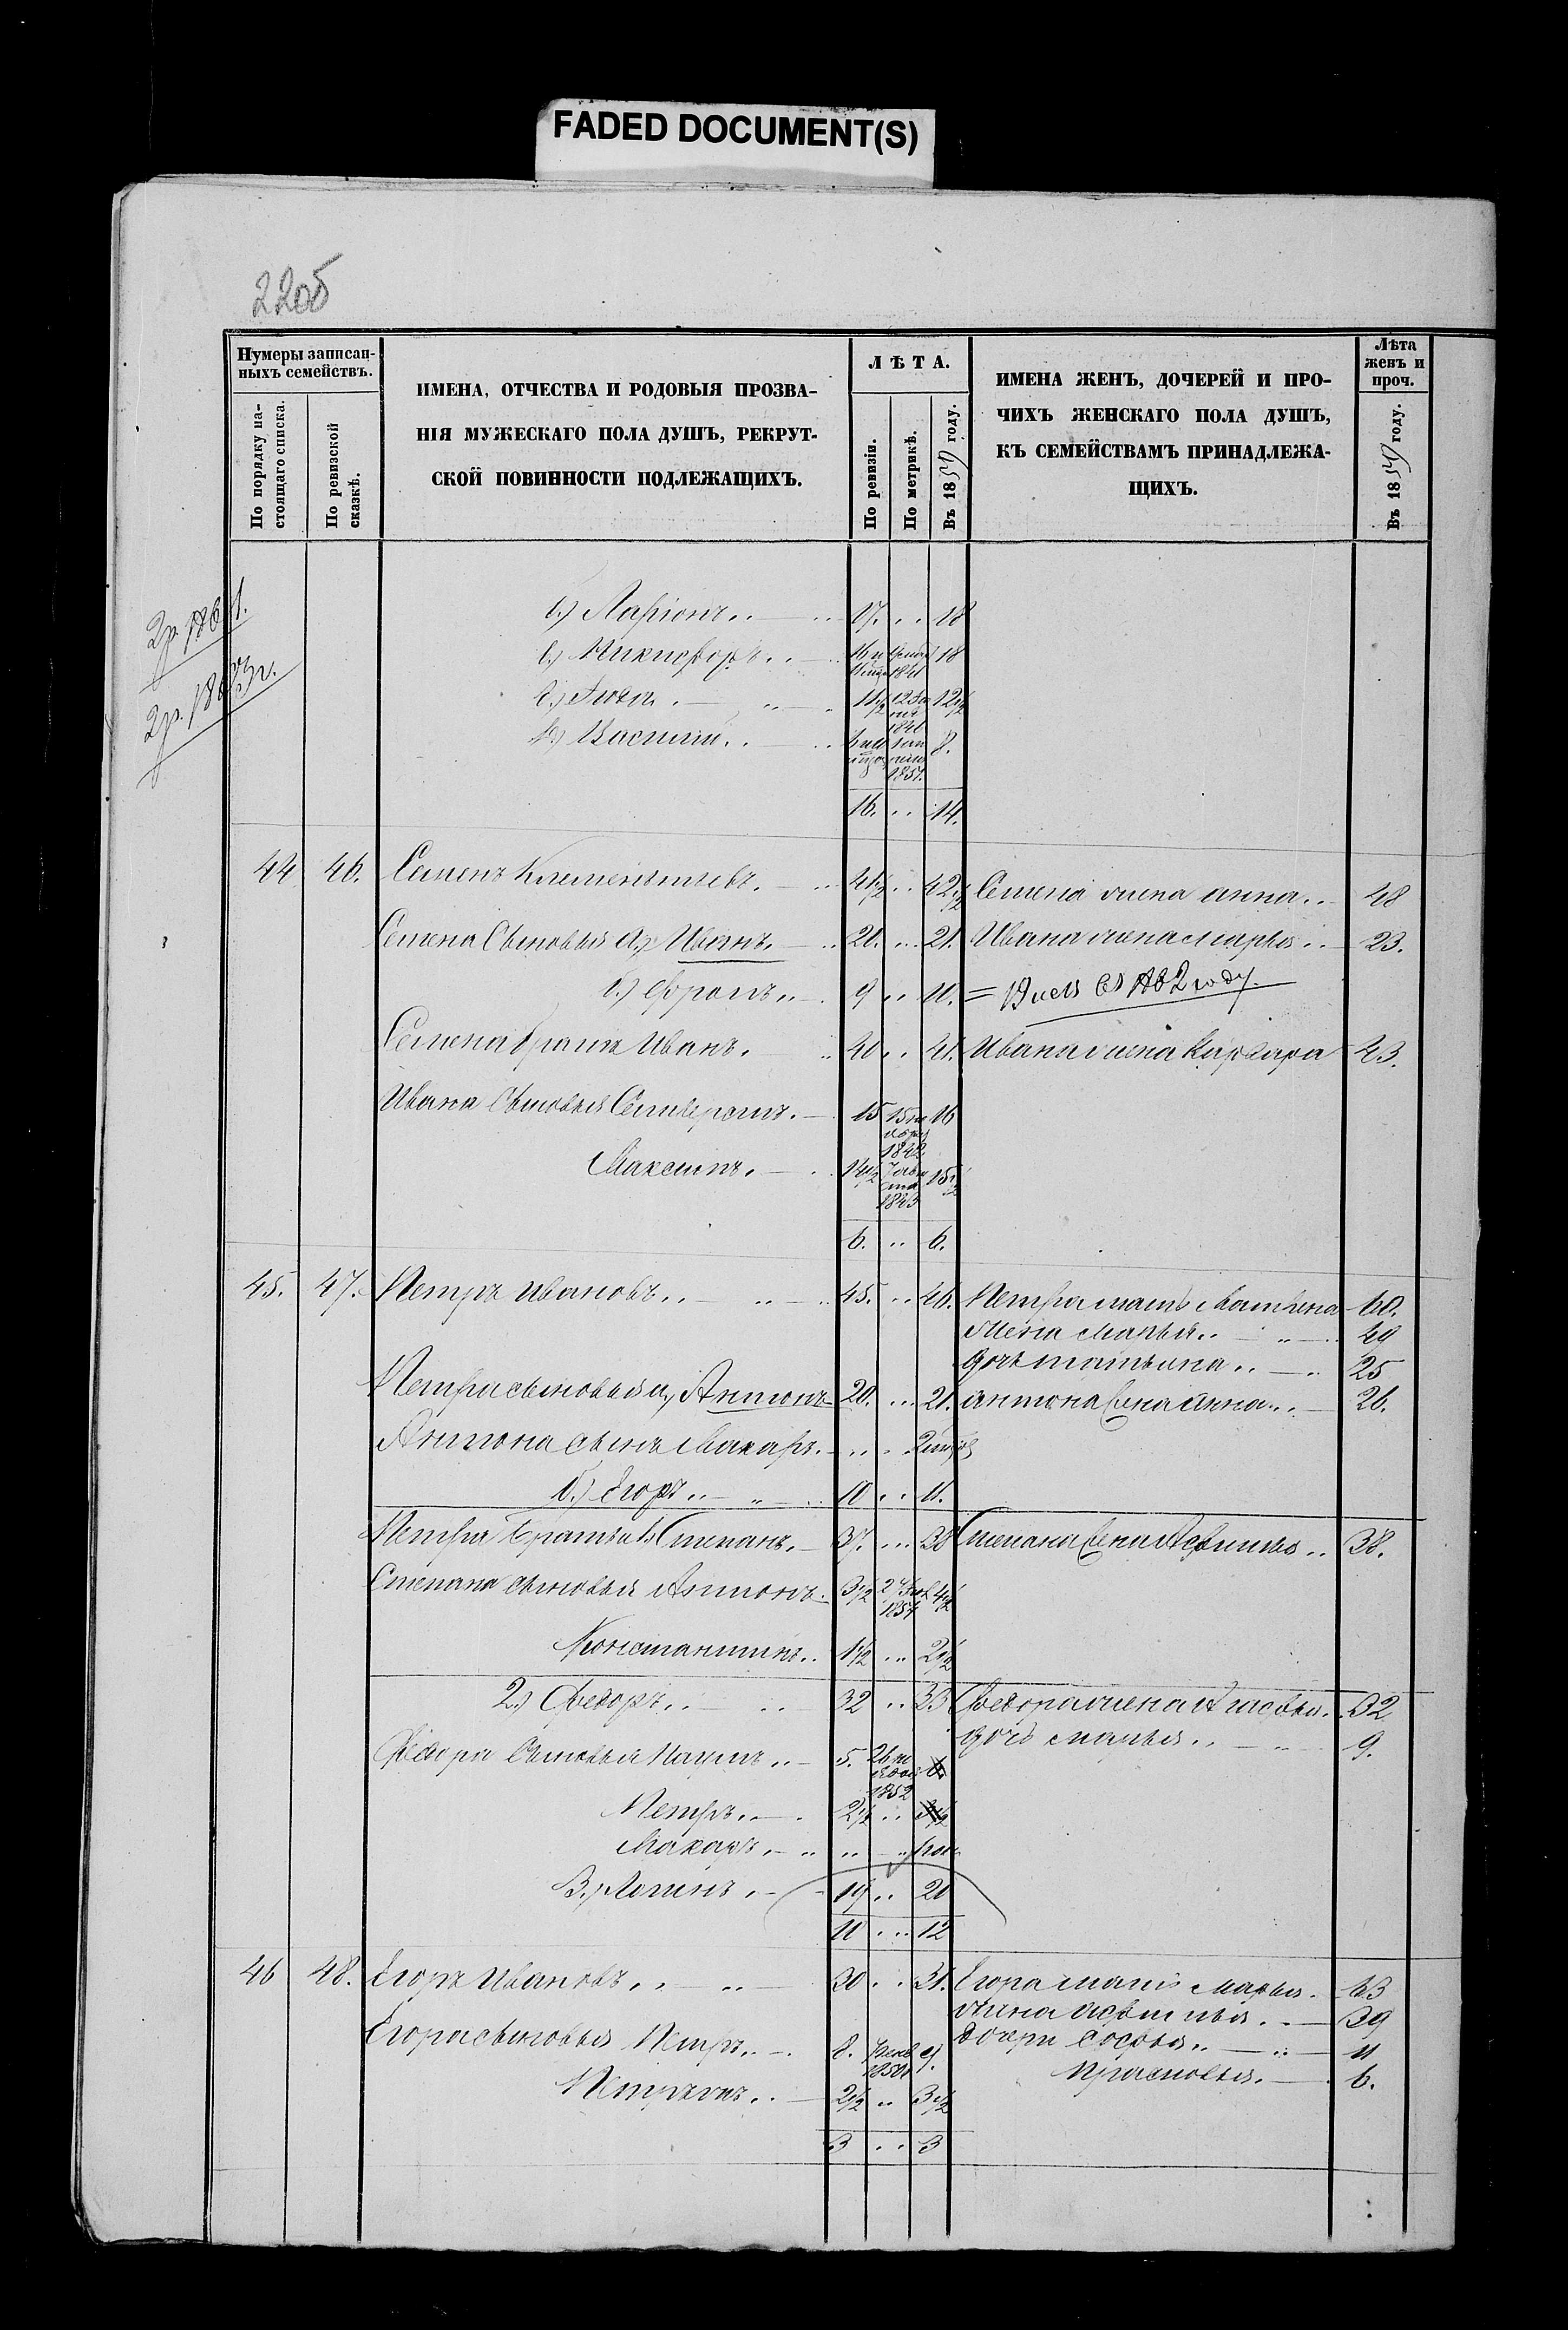 FADED DOCUMENT(S)
22об
Нумеры записан-
ныхъ семействъ.
По порядку на-
стоящаго списка.
По ревизской
сказкѣ.
ИМЕНА, ОТЧЕСТВА И РОДОВЫЯ ПРОЗВА-
НІЯ МУЖЕСКАГО ПОЛА ДУШЪ, РЕКРУТ-
СКОЙ ПОВИННОСТИ ПОДЛЕЖАЩИХЪ.
ЛѢТА.
По ревизіи.
По метрикѣ.
Въ 1859 году.
ИМЕНА ЖЕНЪ, ДОЧЕРЕЙ И ПРО-
ЧИХЪ ЖЕНСКАГО ПОЛА ДУШЪ,
КЪ СЕМЕЙСТВАМЪ ПРИНАДЛЕЖА-
ЩИХЪ.
Лѣта
женъ и
проч.
Въ 1859 году.
б.) Ларіонъ 17. 18
в.) Никифоръ 18
11 1/2 12 1/2
д.) Василій 8.
1851.
16. 14.
44 46. Семенъ Клементьевъ. 41 1/2 42 1/2 Семена жена анна 48
Семена Сыновья а.) Иванъ. 20. 21. Ивана жена Марья 23.
б.) Фролъ 9 10.
Семена братъ Иванъ. 40 41. Ивана жена Варвара 43.
Ивана Сыновья 15 16
1842
Максимъ. 14 1/2 15 1/2
1843
6. 6.
45. 47. Петръ Ивановъ 45. 46. Петра мать 60.
Жена Марья 49
дочь татьяна 25
Петра сыновья а.) Антонъ 20. 21. антона жена анна 26.
Антона сынъ Макаръ.
б.) Егоръ 10 11.
Петра братья 1) Степанъ. 37. 38 Степана жена 38.
Степана сыновья Антонъ. 3 1/2 4 1/2
Константинъ 1 1/2 2 1/2
2.) Федоръ 32 33 Федора жена 32
дочь марья 9.
Федора Сыновья Наумъ 5.
1852
Петръ 2 1/2
Макаръ
3.) Логинъ 19 20
11 12
46 48. Егоръ Ивановъ 30 31. Егора мать Марья. 63
жена 39
Егора сыновья Петръ 8. 9. дочери Софья 11
Прасковья. 6.
2 1/2 3 1/2
3 3